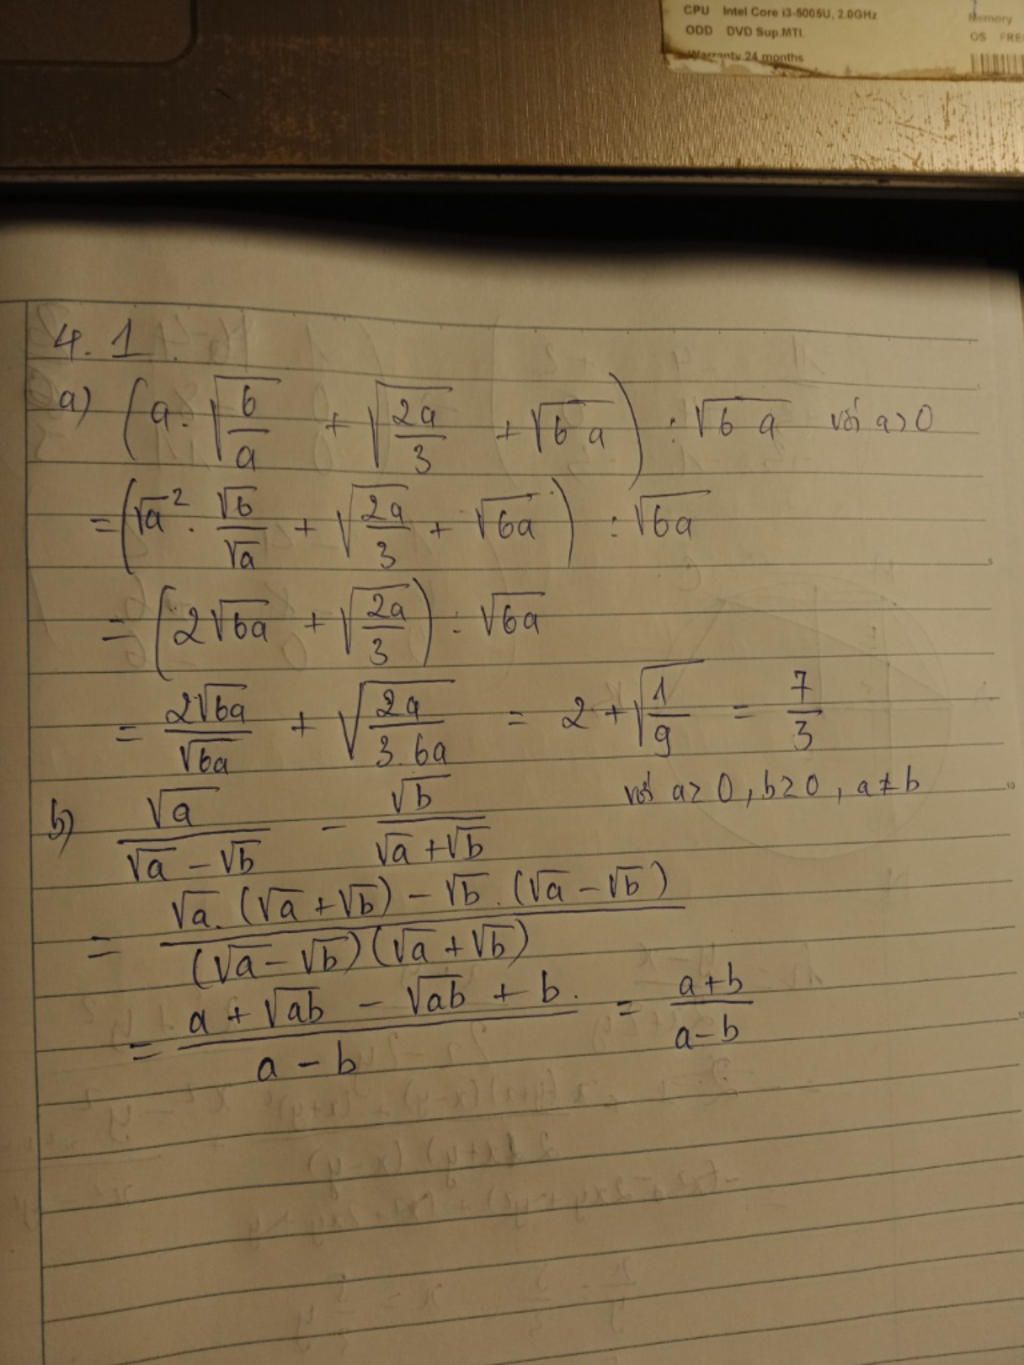 CPU Intel Core i3-5005U, 2.0GHz Memory
ODD DVD Sup.MTI. OS FREE
Warranty 24 months
4.1.
a) (a.√(6/a) + √(2a/3) + √(6a)) : √(6a) với a>0
= (√a² . √6/√a + √(2a/3) + √(6a)) : √(6a)
= (2√(6a) + √(2a/3)) : √(6a)
= 2√(6a)/√(6a) + √(2a/(3.6a)) = 2 + √(1/9) = 7/3
b) √a/(√a − √b) − √b/(√a + √b) với a≥0, b≥0, a≠b
= (√a.(√a + √b) − √b.(√a − √b))/((√a − √b)(√a + √b))
= (a + √(ab) − √(ab) + b)/(a − b) = (a+b)/(a−b)